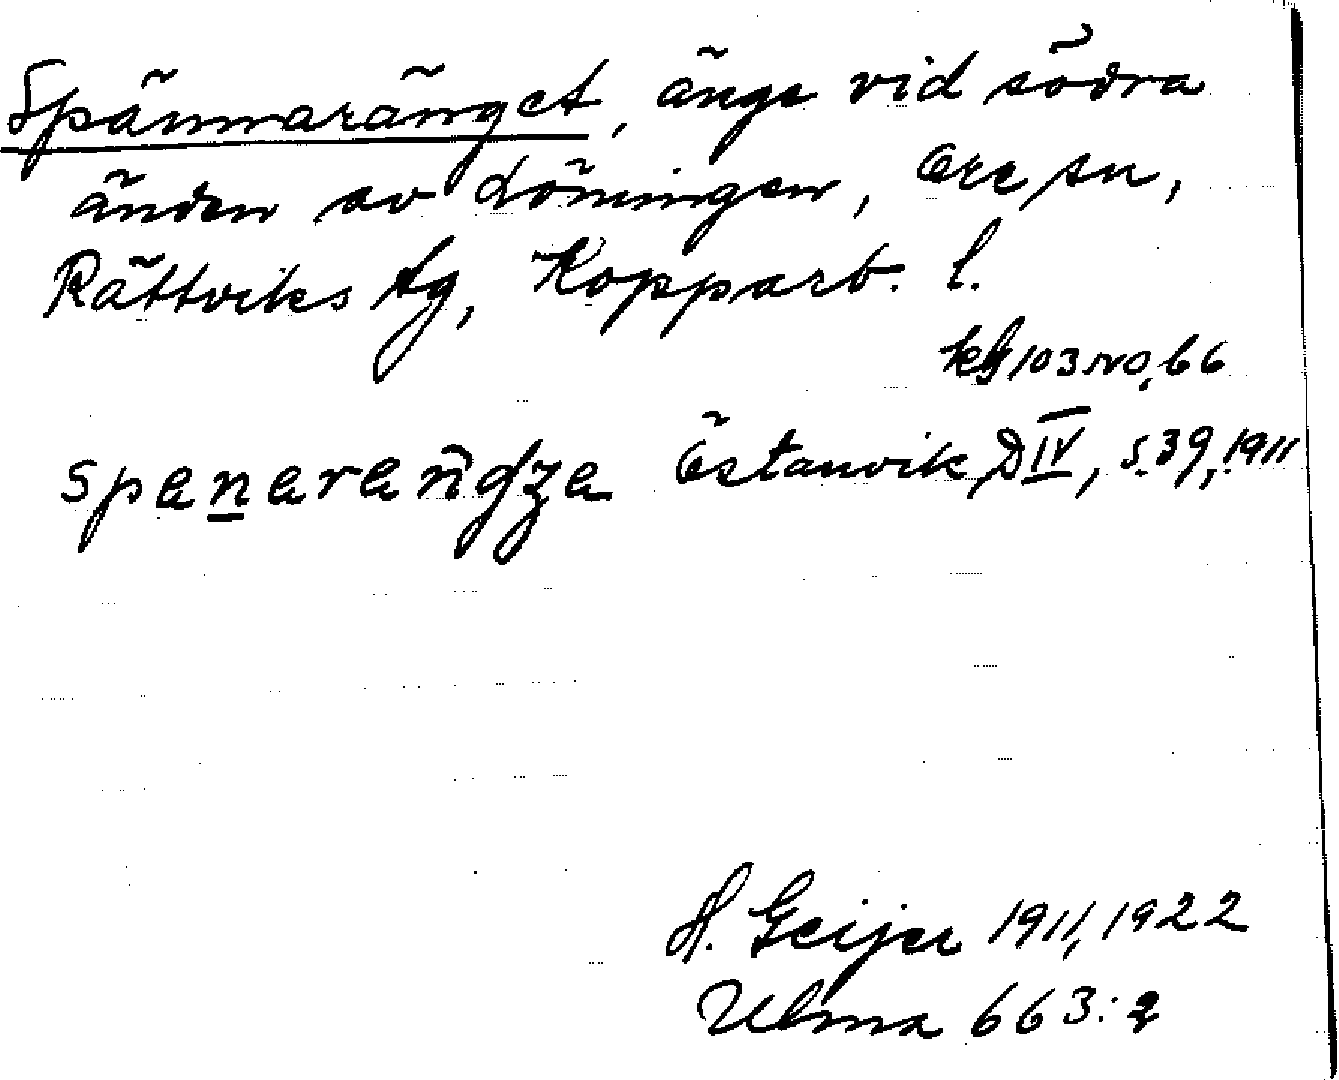 Spännaränget, änge vid södra
änden av Löningen, Ore sn,
Rättviks tg, Kopparb. l.
kbl 103 NO, 66
spanarandza Östanvik, D IV, s. 39, 1911
H. Geijer 1911, 1922
Ulma 663:2